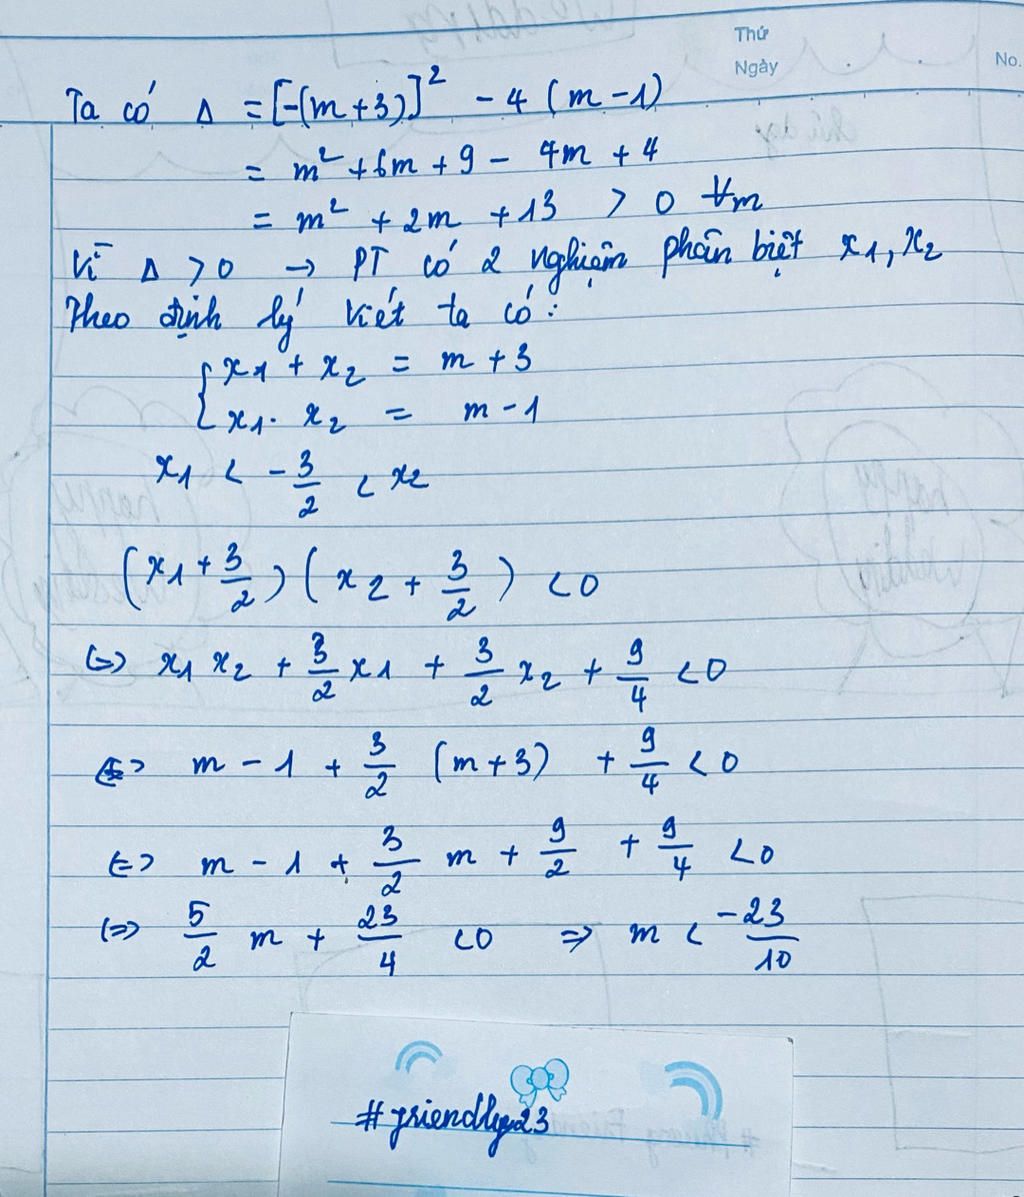 Thứ
Ngày
No.
Ta có Δ = [-(m+3)]² - 4 (m-1)
= m² + 6m + 9 - 4m + 4
= m² + 2m + 13 > 0 ∀m
Vì Δ > 0 → PT có 2 nghiệm phân biệt x1, x2
Theo định lý Viét ta có:
{ x1 + x2 = m + 3
x1. x2 = m - 1
x1 < - 3/2 < x2
(x1 + 3/2) (x2 + 3/2) < 0
(=) x1 x2 + 3/2 x1 + 3/2 x2 + 9/4 < 0
<=> m - 1 + 3/2 (m+3) + 9/4 < 0
<=> m - 1 + 3/2 m + 9/2 + 9/4 < 0
<=> 5/2 m + 23/4 < 0 => m < -23/10
#friendly23